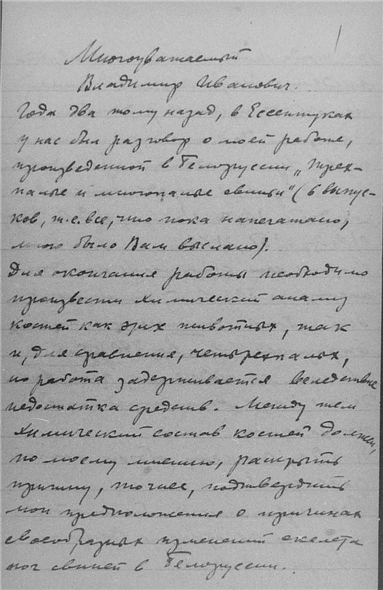 1
Многоуважаемый
Владимир Иванович.
Года два тому назад, в Ессентуках
у нас был разговор о моей работе,
произведенной в Белоруссии „Трех-
палые и многопалые свиньи" (6 выпус-
ков, т.е. все, что пока напечатано,
мною было Вам выслано).
Для окончания работы необходимо
произвести химический анализ
костей как этих животных, так
и, для сравнения, четырехпалых,
но работа задерживается вследствие
недостатка средств. Между тем
химический состав костей должен,
по моему мнению, раскрыть
причину, точнее, подтвердить
мои предположения о причинах
своеобразных изменений скелета
ног свиней в Белоруссии.